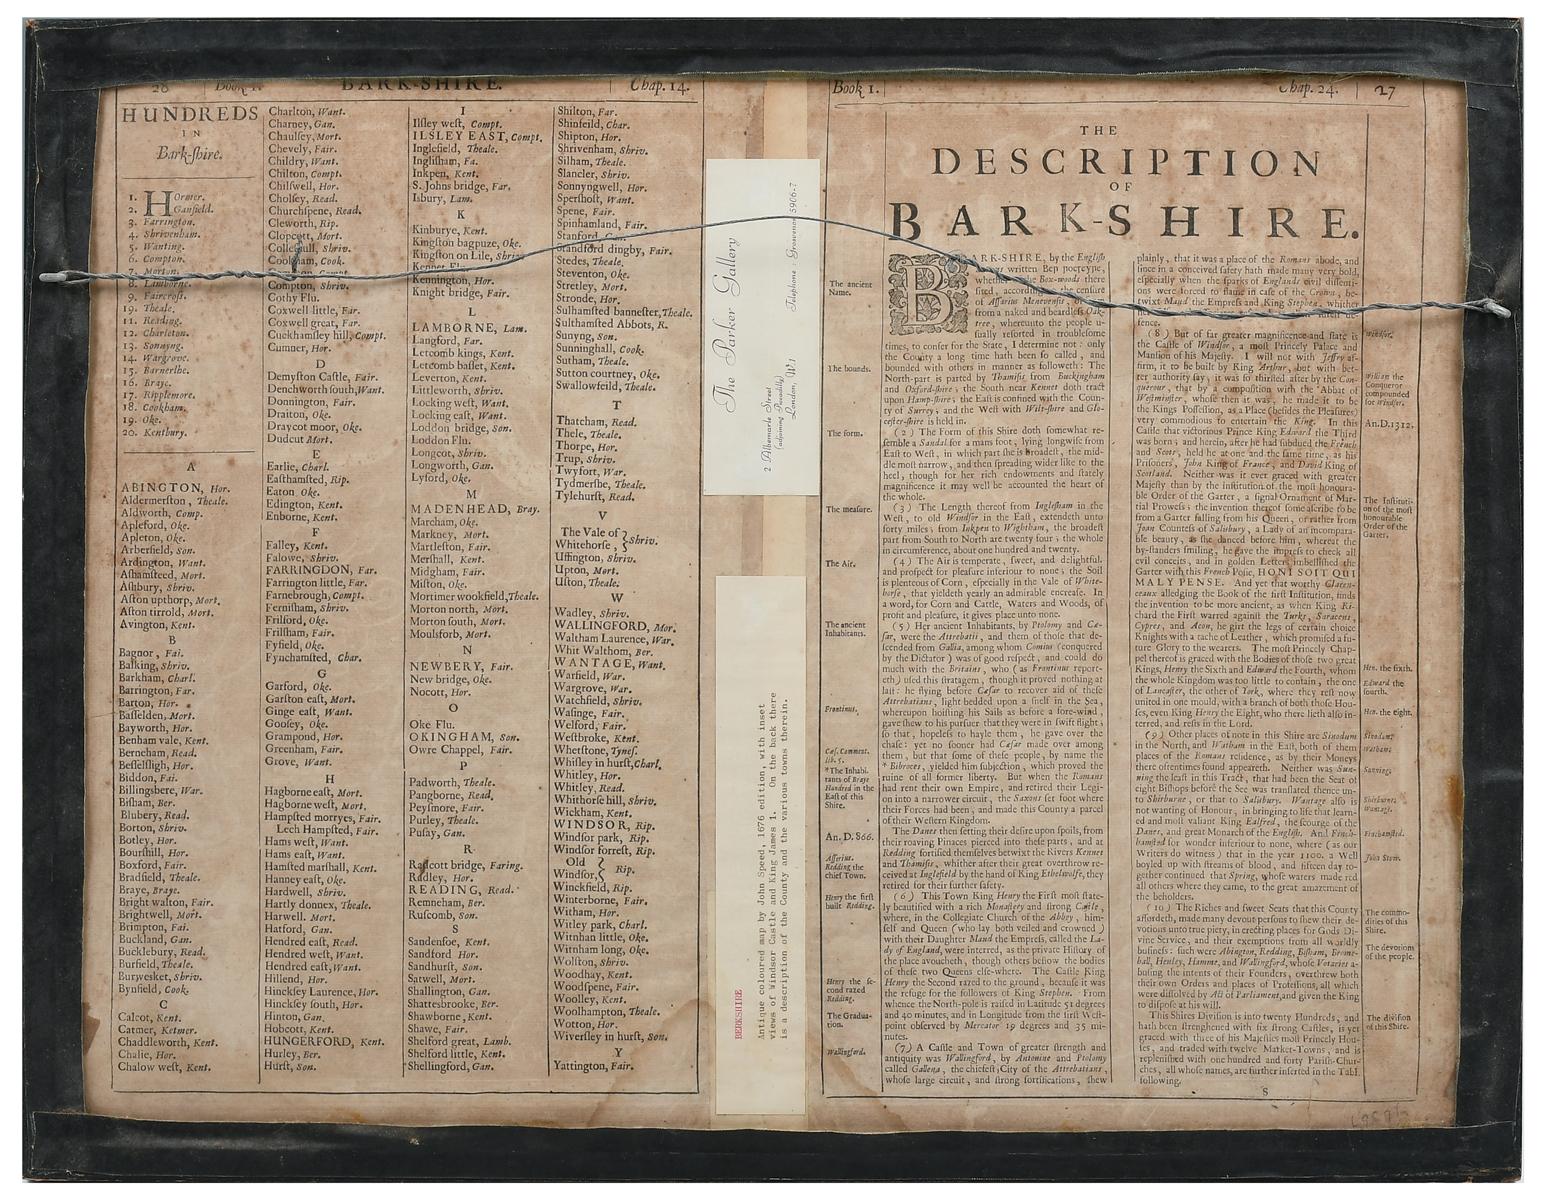 28 Book 1. BARK-SHIRE. Chap. 14.
HUNDREDS
IN
Bark-shire.
1. Hormer.
2. Ganfield.
3. Farrington.
4. Shrivenham.
5. Wanting.
6. Compton.
7. Morton.
8. Lamborne.
9. Faircross.
10. Theale.
11. Reading.
12. Charleton.
13. Sonnyng.
14. Wargrove.
15. Barnershe.
16. Braye.
17. Ripplemore.
18. Cookham.
19. Oke.
20. Kentbury.
A
ABINGTON, Hor.
Aldermerston, Theale.
Aldworth, Comp.
Apleford, Oke.
Apleton, Oke.
Arberfield, Son.
Ardington, Want.
Ashamsteed, Mort.
Ashbury, Shriv.
Aston upthorp, Mort.
Aston tirrold, Mort.
Avington, Kent.
B
Bagnor, Fai.
Balking, Shriv.
Barkham, Charl.
Barrington, Far.
Barton, Hor.
Basselden, Mort.
Bayworth, Hor.
Benham vale, Kent.
Berneham, Read.
Besselsligh, Hor.
Biddon, Fai.
Billingsbere, War.
Bisham, Ber.
Blubery, Read.
Borton, Shriv.
Botley, Hor.
Bourshill, Hor.
Boxford, Fair.
Bradfield, Theale.
Braye, Braye.
Bright walton, Fair.
Brightwell, Mort.
Brimpton, Fai.
Buckland, Gan.
Bucklebury, Read.
Burfield, Theale.
Burwesket, Shriv.
Bynfield, Cook.
C
Calcot, Kent.
Catmer, Ketmer.
Chaddleworth, Kent.
Chalie, Hor.
Chalow west, Kent.
Charlton, Want.
Charney, Gan.
Chaulsey, Mort.
Chevely, Fair.
Childry, Want.
Chilton, Compt.
Chilswell, Hor.
Cholsey, Read.
Churchspene, Read.
Cleworth, Rip.
Clopcott, Mort.
Shriv.
Cookham, Cook.
Compton, Shriv.
Cothy Flu.
Coxwell little, Far.
Coxwell great, Far.
Cuckhamsley hill, Compt.
Cumner, Hor.
D
Demyston Castle, Fair.
Denchworth south, Want.
Donnington, Fair.
Draiton, Oke.
Draycot moor, Oke.
Dudcut Mort.
E
Earlie, Charl.
Easthamsted, Rip.
Eaton Oke.
Edington, Kent.
Enborne, Kent.
F
Falley, Kent.
Falowe, Shriv.
FARRINGDON, Far.
Farrington little, Far.
Farnebrough, Compt.
Fernisham, Shriv.
Frilford, Oke.
Frilsham, Fair.
Fyfield, Oke.
Fynchamsted, Char.
G
Garford, Oke.
Garston east, Mort.
Ginge east, Want.
Goosey, Oke.
Grampond, Hor.
Greenham, Fair.
Grove, Want.
H
Hagborne east, Mort.
Hagborne west, Mort.
Hampsted morryes, Fair.
Lech Hampsted, Fair.
Hams west, Want.
Hams east, Want.
Hamsted marshall, Kent.
Hanney east, Oke.
Hardwell, Shriv.
Hartly donnex, Theale.
Harwell. Mort.
Hatford, Gan.
Hendred east, Read.
Hendred west, Want.
Hendred east, Want.
Hillend, Hor.
Hincksey Laurence, Hor.
Hincksey south, Hor.
Hinton, Gan.
Hobcott, Kent.
HUNGERFORD, Kent.
Hurley, Ber.
Hurst, Son.
I
Ilsley west, Compt.
ILSLEY EAST, Compt.
Inglefield, Theale.
Inglisham, Fa.
Inkpen, Kent.
S. Johns bridge, Far.
Isbury, Lam.
K
Kinburye, Kent.
Kingston bagpuze, Oke.
Kingston on Lile, Shriv.
Kennet Flu.
Kennington, Hor.
Knight bridge, Fair.
L
LAMBORNE, Lam.
Langford, Far.
Letcomb kings, Kent.
Letcomb basset, Kent.
Leverton, Kent.
Littleworth, Shriv.
Locking west, Want.
Locking east, Want.
Loddon bridge, Son.
Loddon Flu.
Longcot, Shriv.
Longworth, Gan.
Lyford, Oke.
M
MADENHEAD, Bray.
Marcham, Oke.
Markney, Mort.
Martleston, Fair.
Mershall, Kent.
Midgham, Fair.
Milton, Oke.
Mortimer wookfield, Theale.
Morton north, Mort.
Morton south, Mort.
Moulsforb, Mort.
N
NEWBERY, Fair.
New bridge, Oke.
Nocott, Hor.
O
Oke Flu.
OKINGHAM, Son.
Owre Chappel, Fair.
P
Padworth, Theale.
Pangborne, Read.
Peysmore, Fair.
Purley, Theale.
Pusay, Gan.
R
Radcott bridge, Faring.
Radley, Hor.
READING, Read.
Remneham, Ber.
Ruscomb, Son.
S
Sandenfoe, Kent.
Sandford Hor.
Sandhurst, Son.
Satwell, Mort.
Shallington, Gan.
Shattesbrooke, Ber.
Shawborne, Kent.
Shawe, Fair.
Shelford great, Lamb.
Shelford little, Kent.
Shellingford, Gan.
Shilton, Far.
Shinfeild, Char.
Shipton, Hor.
Shrivenham, Shriv.
Silham, Theale.
Slancler, Shriv.
Sonnyngwell, Hor.
Spersholt, Want.
Spene, Fair.
Spinhamland, Fair.
Stanford, Gan.
Standford dingby, Fair.
Stedes, Theale.
Steventon, Oke.
Stretley, Mort.
Stronde, Hor.
Sulhamsted bannester, Theale.
Sulthamsted Abbots, R.
Sunyng, Son.
Sunninghall, Cook.
Sutham, Theale.
Sutton courtney, Oke.
Swallowfeild, Theale.
T
Thatcham, Read.
Thele, Theale.
Thorpe, Hor.
Trup, Shriv.
Twyfort, War.
Tydmershe, Theale.
Tylehurst, Read.
V
The Vale of
Whitehorse, } Shriv.
Uffington, Shriv.
Upton, Mort.
Uston, Theale.
W
Wadley, Shriv.
WALLINGFORD, Mor.
Waltham Laurence, War.
Whit Walthom, Ber.
WANTAGE, Want.
Warfield, War.
Wargrove, War.
Watchfield, Shriv.
Wasinge, Fair.
Welford, Fair.
Westbroke, Kent.
Whetstone, Tynes.
Whisley in hurst, Charl.
Whitley, Hor.
Whitley, Read.
Whithorse hill, Shriv.
Wickham, Kent.
WINDSOR, Rip.
Windsor park, Rip.
Windsor forrest, Rip.
Old
Windsor, } Rip.
Winckfield, Rip.
Winterborne, Fair.
Witham, Hor.
Witley park, Charl.
Witnhan little, Oke.
Witnham long, Oke.
Wolston, Shriv.
Woodhay, Kent.
Woodspene, Fair.
Woolley, Kent.
Woolhampton, Theale.
Wotton, Hor.
Wiversley in hurst, Son.
Y
Yattington, Fair.
The Parker Gallery
2 Albemarle Street
(adjoining Piccadilly)
London, W.1 Telephone: Grosvenor 5906-7
BERKSHIRE
Antique coloured map by John Speed, 1676 edition, with inset
views of Windsor Castle and King James 1. On the back there
is a description of the County and the various towns therein.
Book 1. Chap. 24. 27
THE
DESCRIPTION
OF
BARK-SHIRE.
The ancient
Name.
The bounds.
The form.
The measure.
The Air.
The ancient
Inhabitants.
Frontinus.
Cæs. Comment.
lib. 5.
* The Inhabi-
tants of Braye
Hundred in the
East of this
Shire.
An. D. 866.
Asserius.
Redding the
chief Town.
Henry the first
built Redding.
Henry the se-
cond razed
Redding.
The Gradua-
tion.
Wallingford.
BARK-SHIRE, by the English
written
whether Box-woods there
sited, according the censure
of Asserius Menevensis,
from a naked and beardless Oak-
tree, whereunto the people u-
sually resorted in troublesome
times, to confer for the State, I determine not: only
the County a long time hath been so called, and
bounded with others in manner as followeth: The
North-part is parted by Thamisis from Buckingham
and Oxford-shire; the South near Kennet doth tract
upon Hamp-shire; the East is confined with the Coun-
ty of Surrey; and the West with Wilt-shire and Glo-
cester-shire is held in.
(2) The Form of this Shire doth somewhat re-
semble a Sandal for a mans foot, lying longwise from
East to West, in which part she is broadest, the mid-
dle most narrow, and then spreading wider like to the
heel; though for her rich endowments and stately
magnificence it may well be accounted the heart of
the whole.
(3) The Length thereof from Inglesham in the
West, to old Windsor in the East, extendeth unto
forty miles; from Inkpen to Wightham, the broadest
part from South to North are twenty four; the whole
in circumference, about one hundred and twenty.
(4) The Air is temperate, sweet, and delightful,
and prospect for pleasure inferiour to none; the Soil
is plenteous of Corn, especially in the Vale of White-
horse, that yieldeth yearly an admirable encrease. In
a word, for Corn and Cattle, Waters and Woods, of
profit and pleasure, it gives place unto none.
(5) Her ancient Inhabitants, by Ptolomy and Cæ-
sar, were the Attrebatii, and them of those that de-
scended from Gallia, among whom Comius (conquered
by the Dictator) was of good respect, and could do
much with the Britains, who (as Frontinus report-
eth) used this stratagem, though it proved nothing at
last: he flying before Cæsar to recover aid of these
Attrebatians, light bedded upon a shelf in the Sea,
whereupon hoising his Sails as before a fore-wind,
gave shew to his pursuer that they were in swift flight;
so that, hopeless to hayle them, he gave over the
chase: yet no sooner had Cæsar made over among
them, but that some of these people, by name the
* Bibroces, yielded him subjection, which proved the
ruine of all former liberty. But when the Romans
had rent their own Empire, and retired their Legi-
on into a narrower circuit, the Saxons set foot where
their Forces had been, and made this County a parcel
of their Western Kingdom.
The Danes then setting their desire upon spoils, from
their roaving Pinaces pierced into these parts, and at
Redding fortified themselves betwixt the Rivers Kennet
and Thamisis, whither after their great overthrow re-
ceived at Inglefield by the hand of King Ethelwolfe, they
retired for their further safety.
(6) This Town King Henry the First most state-
ly beautified with a rich Monastery and strong Castle,
where, in the Collegiate Church of the Abbey, him-
self and Queen (who lay both veiled and crowned)
with their Daughter Maud the Empress, called the La-
dy of England, were interred, as the private History of
the place avoucheth, though others bestow the bodies
of these two Queens else-where. The Castle King
Henry the Second razed to the ground, because it was
the refuge for the followers of King Stephen. From
whence the North-pole is raised in Latitude 51 degrees
and 40 minutes, and in Longitude from the first West-
point observed by Mercator 19 degrees and 35 mi-
nutes.
(7) A Castle and Town of greater strength and
antiquity was Wallingford, by Antonine and Ptolomy
called Gallena, the chiefest City of the Attrebatians,
whose large circuit, and strong fortifications, shew
plainly, that it was a place of the Romans abode, and
since in a conceived safety hath made many very bold,
especially when the sparks of Englands civil dissenti-
ons were forced to flame in case of the Crown, be-
twixt Maud the Empress and King Stephen, whither
fence.
(8) But of far greater magnificence and state is
the Castle of Windsor, a most Princely Palace and
Mansion of his Majesty. I will not with Jeffry af-
firm, it to be built by King Arthur, but with bet-
ter authority say, it was so thirsted after by the Con-
querour, that by a composition with the Abbat of
Westminster, whose then it was, he made it to be
the Kings Possession, as a Place (besides the Pleasures)
very commodious to entertain the King. In this
Castle that victorious Prince King Edward the Third
was born; and herein, after he had subdued the French
and Scots, held he at one and the same time, as his
Prisoners, John King of France, and David King of
Scotland. Neither was it ever graced with greater
Majesty than by the institution of the most honoura-
ble Order of the Garter, a signal Ornament of Mar-
tial Prowess: the invention thereof some ascribe to be
from a Garter falling from his Queen, or rather from
Joan Countess of Salisbury, a Lady of an incompara-
ble beauty, as she danced before him, whereat the
by-standers smiling, he gave the impress to check all
evil conceits, and in golden Letters imbellished the
Garter with this French Posie, HONI SOIT QUI
MALY PENSE. And yet that worthy Claren-
ceaux alledging the Book of the first Institution, finds
the invention to be more ancient, as when King Ri-
chard the First warred against the Turks, Saracens,
Cypres, and Acon, he girt the legs of certain choice
Knights with a tache of Leather, which promised a fu-
ture Glory to the wearers. The most Princely Chap-
pel thereof is graced with the Bodies of those two great
Kings, Henry the Sixth and Edward the Fourth, whom
the whole Kingdom was too little to contain, the one
of Lancaster, the other of York, where they rest now
united in one mould, with a branch of both those Hou-
ses, even King Henry the Eight, who there lieth also in-
terred, and rests in the Lord.
(9) Other places of note in this Shire are Sinodum
in the North, and Watham in the East, both of them
places of the Romans residence, as by their Moneys
there oftentimes found appeareth. Neither was Sun-
ning the least in this Tract, that had been the Seat of
eight Bishops before the See was translated thence un-
to Shirburne, or that to Salisbury. Wantage also is
not wanting of Honour, in bringing to life that learn-
ed and most valiant King Ealfred, the scourge of the
Danes, and great Monarch of the English. And Finch-
hamsted for wonder inferiour to none, where (as our
Writers do witness) that in the year 1100. a Well
boyled up with streams of blood, and fifteen days to-
gether continued that Spring, whose waters made red
all others where they came, to the great amazement of
the beholders.
(10) The Riches and sweet Seats that this County
affordeth, made many devout persons to shew their de-
votions unto true piety, in erecting places for Gods Di-
vine Service, and their exemptions from all worldly
business: such were Abington, Redding, Bisham, Brome-
hall, Henley, Hamme, and Wallingford, whose Votaries a-
busing the intents of their Founders, overthrew both
their own Orders and places of Professions, all which
were dissolved by Act of Parliament, and given the King
to dispose at his will.
This Shires Division is into twenty Hundreds, and
hath been strengthened with six strong Castles, is yet
graced with three of his Majesties most Princely Hou-
ses, and traded with twelve Market-Towns, and is
replenished with one hundred and forty Parish-Chur-
ches, all whose names, are further inserted in the Tabl
following.
S
Windsor.
William the
Conqueror
compounded
for Windsor.
An. D. 1312.
The Instituti-
on of the most
honourable
Order of the
Garter.
Hen. the sixth.
Edward the
fourth.
Hen. the eight.
Sinodum.
Watham.
Sunning.
Shirburne.
Wantage.
Finchamsted.
John Stow.
The commo-
dities of this
Shire.
The devotions
of the people.
The division
of this Shire.